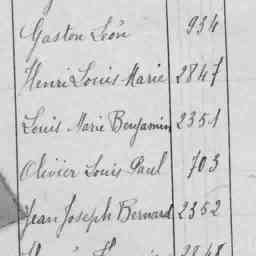 Gaston Léon 934
Henri Louis Marie 2847
Louis Marie Benjamin 2351
Olivier Louis Paul 703
Jean Joseph Bernard 2352
2848